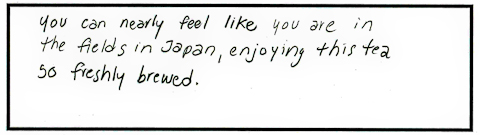 you can nearly feel like you are in
the fields in Japan, enjoying this tea
so freshly brewed.